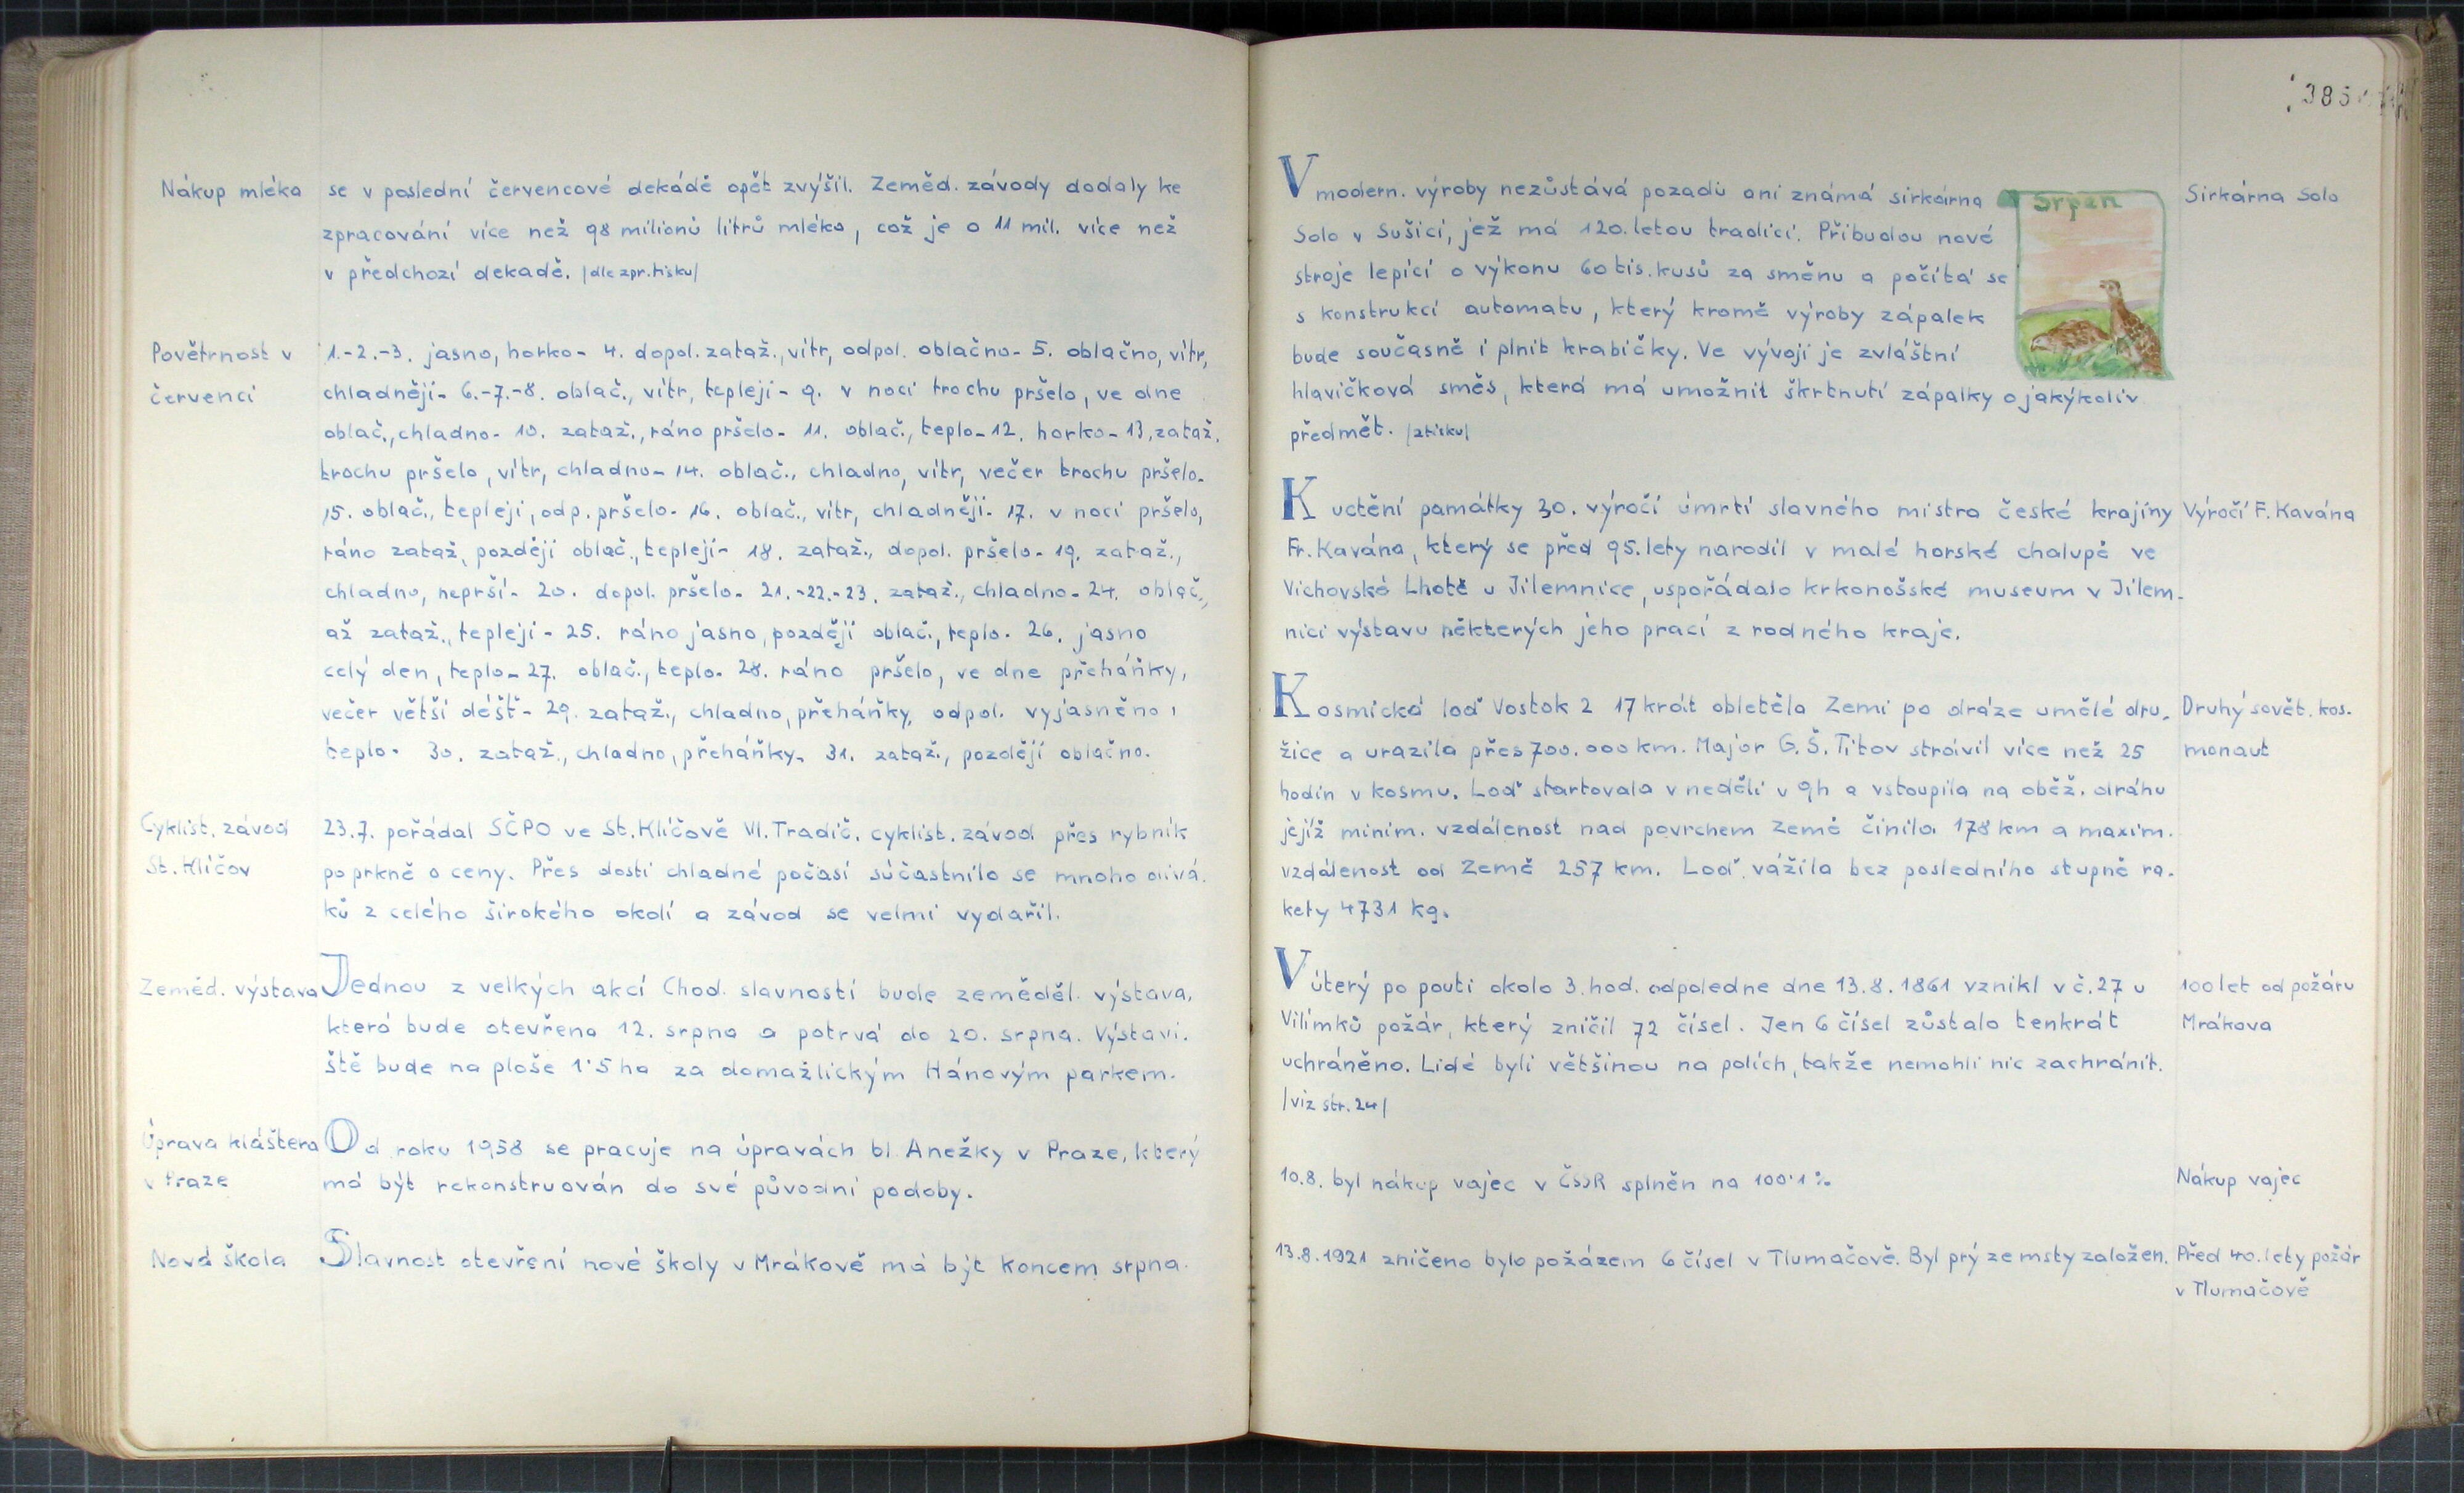 Nákup mléka
se v poslední červencové dekádě opět zvýšil. Zeměd. závody dodaly ke
zpracování více než 98 milionů litrů mléka, což je o 11 mil. více než
v předchozí dekadě. /dle zpr. tisku/
Povětrnost v
červenci
1.-2.-3. jasno, horko - 4. dopol. zataž., vítr, odpol. oblačno - 5. oblačno, vítr,
chladněji - 6.-7.-8. oblač., vítr, tepleji - 9. v noci trochu pršelo, ve dne
oblač., chladno - 10. zataž., ráno pršelo - 11. oblač., teplo - 12. horko - 13. zataž.
trochu pršelo, vítr, chladno - 14. oblač., chladno, vítr, večer trochu pršelo.
15. oblač., tepleji, odp. pršelo - 16. oblač., vítr, chladněji - 17. v noci pršelo,
ráno zataž, později oblač., tepleji - 18. zataž., dopol. pršelo - 19. zataž.,
chladno, neprší - 20. dopol. pršelo - 21.-22.-23. zataž., chladno - 24. oblač.,
až zataž., tepleji - 25. ráno jasno, později oblač., teplo - 26. jasno
celý den, teplo - 27. oblač., teplo - 28. ráno pršelo, ve dne přeháňky,
večer větší déšť - 29. zataž., chladno, přeháňky, odpol. vyjasněno,
teplo - 30. zataž., chladno, přeháňky - 31. zataž., později oblačno.
Cyklist. závod
St. Klíčov
23.7. pořádal SČPO ve St. Klíčově VI. Tradič. cyklist. závod přes rybník
po prkně o ceny. Přes dosti chladné počasí súčastnilo se mnoho divá-
ků z celého širokého okolí a závod se velmi vydařil.
Zeměd. výstava
Jednou z velkých akcí Chod. slavností bude zeměděl. výstava,
která bude otevřena 12. srpna a potrvá do 20. srpna. Výstavi-
ště bude na ploše 1˙5 ha za domažlickým Hánovým parkem.
Úprava kláštera
v Praze
Od roku 1958 se pracuje na úpravách bl. Anežky v Praze, který
má být rekonstruován do své původní podoby.
Nová škola
Slavnost otevření nové školy v Mrákově má být koncem srpna.
385
Srpen
V modern. výroby nezůstává pozadu ani známá sirkárna
Solo v Sušici, jež má 120. letou tradici. Přibudou nové
stroje lepící o výkonu 60 tis. kusů za směnu a počítá se
s konstrukcí automatu, který kromě výroby zápalek
bude současně i plnit krabičky. Ve vývoji je zvláštní
hlavičková směs, která má umožnit škrtnutí zápalky o jakýkoliv
předmět. /z tisku/
Sirkárna Solo
K uctění památky 30. výročí úmrtí slavného mistra české krajiny
Fr. Kavána, který se před 95. lety narodil v malé horské chalupě ve
Víchovské Lhotě u Jilemnice, uspořádalo krkonošské museum v Jilem-
nici výstavu některých jeho prací z rodného kraje.
Výročí F. Kavána
Kosmická loď Vostok 2 17 krát obletěla Zemi po dráze umělé dru-
žice a urazila přes 700.000 km. Major G. Š. Titov strávil více než 25
hodin v kosmu. Loď startovala v neděli v 9h a vstoupila na oběž. dráhu
jejíž minim. vzdálenost nad povrchem Země činila 178 km a maxim.
vzdálenost od Země 257 km. Loď vážila bez posledního stupně ra-
kety 4731 kg.
Druhý sovět. kos-
monaut
V úterý po pouti okolo 3. hod. odpoledne dne 13.8.1861 vznikl v č. 27 u
Vilímků požár, který zničil 72 čísel. Jen 6 čísel zůstalo tenkrát
uchráněno. Lidé byli většinou na polích, takže nemohli nic zachránit.
/viz str. 24/
100 let od požáru
Mrákova
10.8. byl nákup vajec v ČSSR splněn na 100˙1 %
Nákup vajec
13.8.1921 zničeno bylo požázem 6 čísel v Tlumačově. Byl prý ze msty založen.
Před 40. lety požár
v Tlumačově